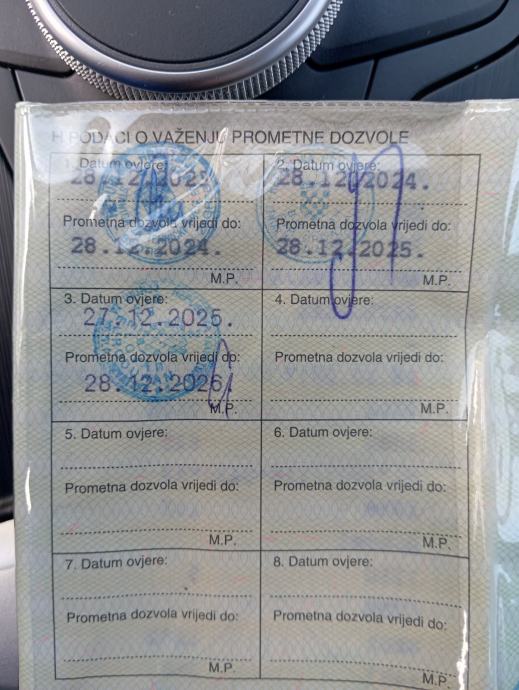 H PODACI O VAŽENJU PROMETNE DOZVOLE
1. Datum ovjere:
28.12.2023.
Prometna dozvola vrijedi do:
28.12.2024.
M.P.
2. Datum ovjere:
28.12.2024.
Prometna dozvola vrijedi do:
28.12.2025.
M.P.
3. Datum ovjere:
27.12.2025.
Prometna dozvola vrijedi do:
28.12.2026.
M.P.
4. Datum ovjere:
Prometna dozvola vrijedi do:
M.P.
5. Datum ovjere:
Prometna dozvola vrijedi do:
M.P.
6. Datum ovjere:
Prometna dozvola vrijedi do:
M.P.
7. Datum ovjere:
Prometna dozvola vrijedi do:
M.P.
8. Datum ovjere:
Prometna dozvola vrijedi do:
M.P.